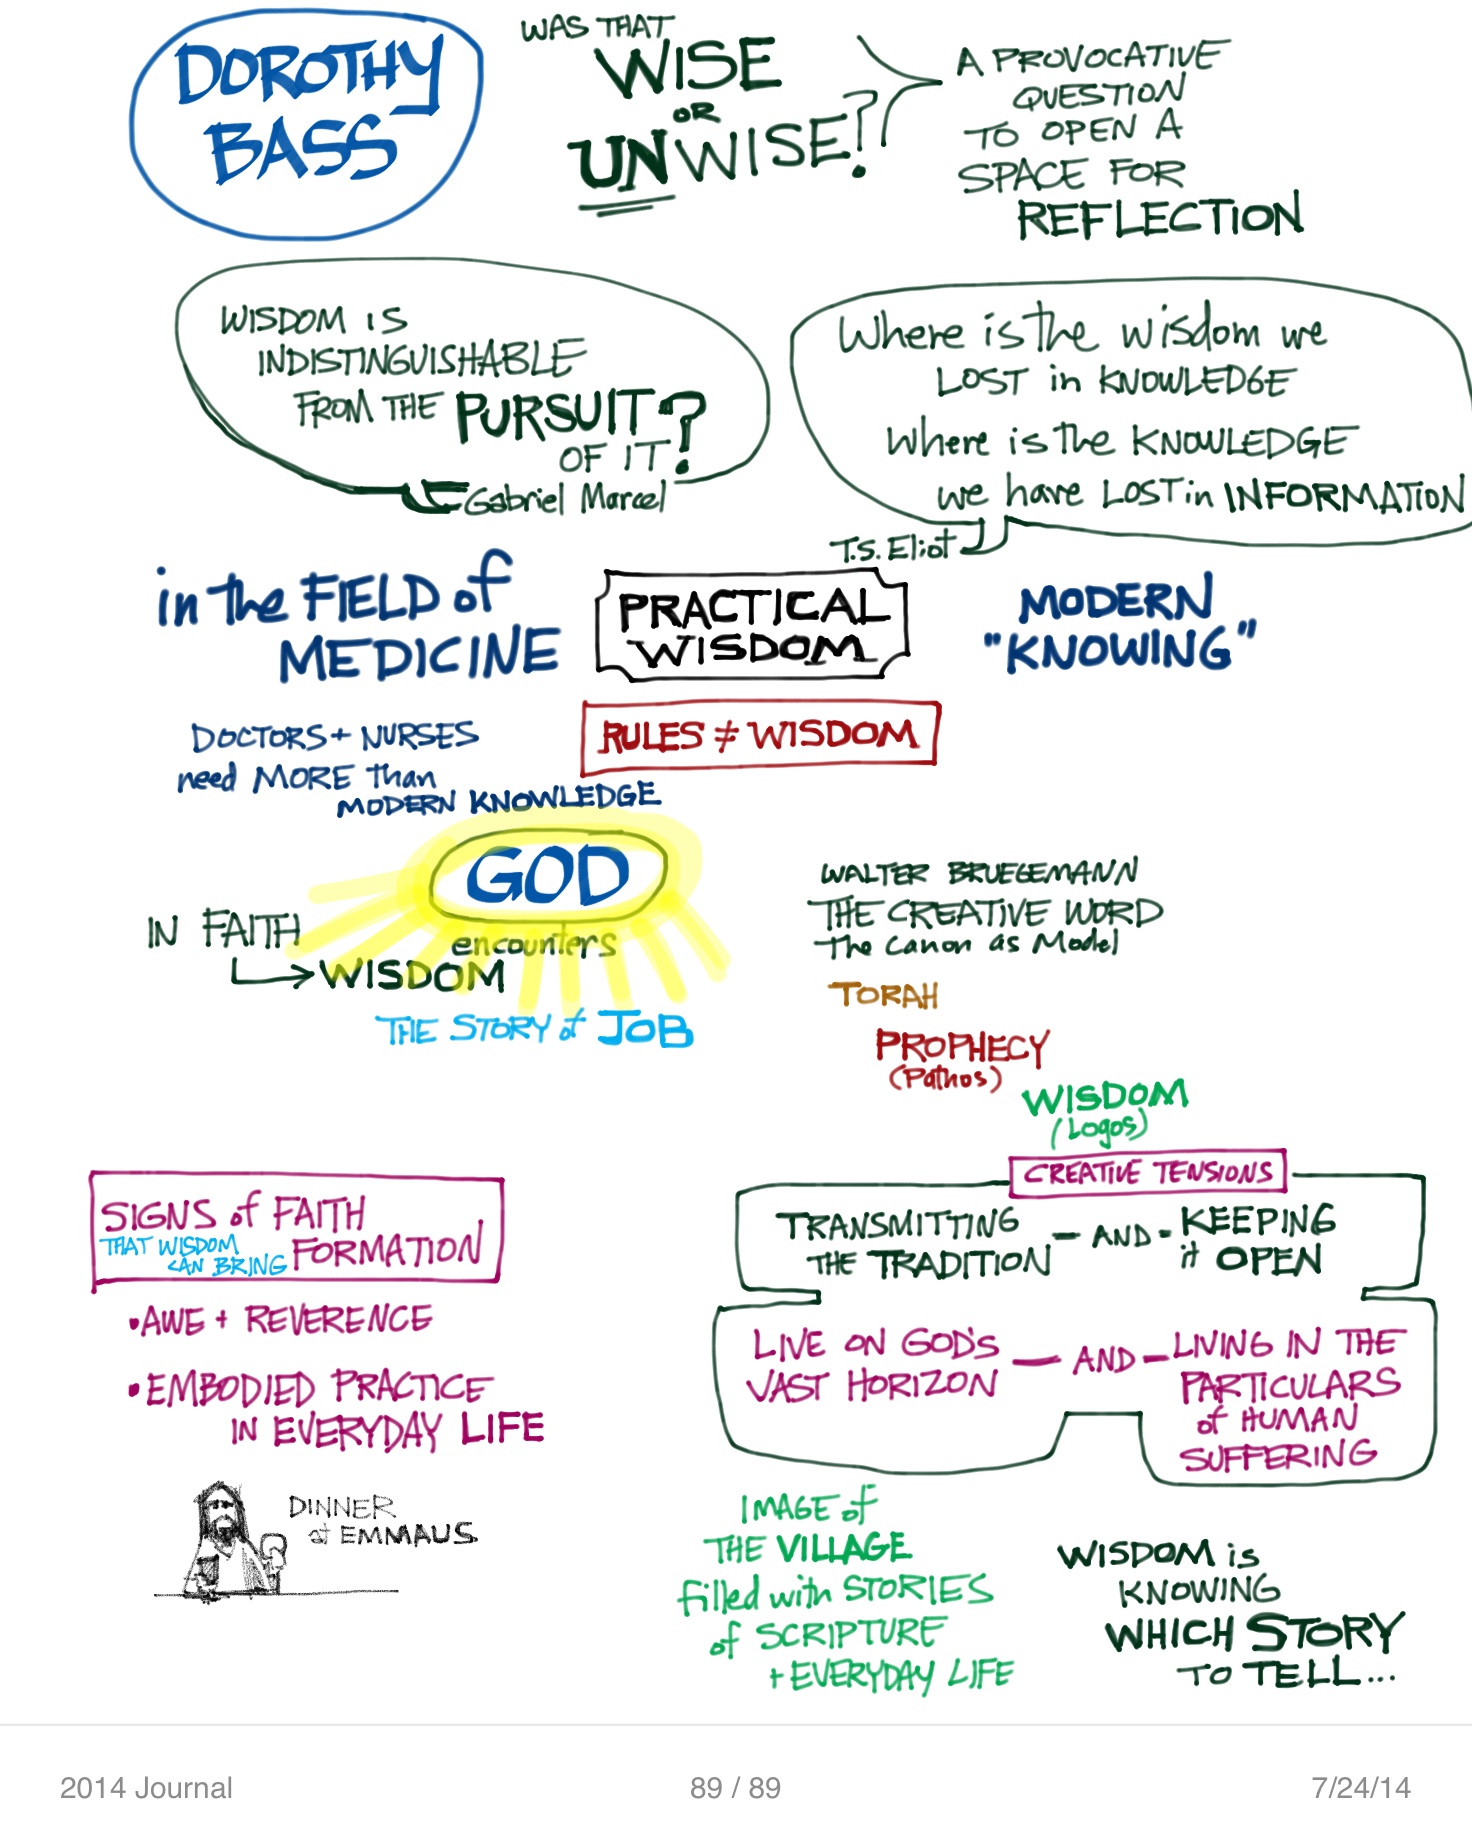 DOROTHY
BASS
WAS THAT
WISE
OR
UNWISE?
A PROVOCATIVE
QUESTION
TO OPEN A
SPACE FOR
REFLECTION
WISDOM IS
INDISTINGUISHABLE
FROM THE PURSUIT
OF IT?
Gabriel Marcel
Where is the wisdom we
LOST in KNOWLEDGE
Where is the KNOWLEDGE
we have LOST in INFORMATION
T.S. Eliot
in the FIELD of
MEDICINE
PRACTICAL
WISDOM
MODERN
"KNOWING"
DOCTORS + NURSES
need MORE than
MODERN KNOWLEDGE
RULES ≠ WISDOM
GOD
IN FAITH
encounters
WISDOM
THE STORY of JOB
WALTER BRUEGEMANN
THE CREATIVE WORD
The Canon as Model
TORAH
PROPHECY
(Pathos)
WISDOM
(Logos)
SIGNS of FAITH
THAT WISDOM
CAN BRING FORMATION
• AWE + REVERENCE
• EMBODIED PRACTICE
IN EVERYDAY LIFE
DINNER
at EMMAUS
CREATIVE TENSIONS
TRANSMITTING
THE TRADITION — AND - KEEPING
it OPEN
LIVE ON GOD'S
VAST HORIZON — AND — LIVING IN THE
PARTICULARS
of HUMAN
SUFFERING
IMAGE of
THE VILLAGE
filled with STORIES
of SCRIPTURE
+ EVERYDAY LIFE
WISDOM is
KNOWING
WHICH STORY
TO TELL...
2014 Journal
89 / 89
7/24/14